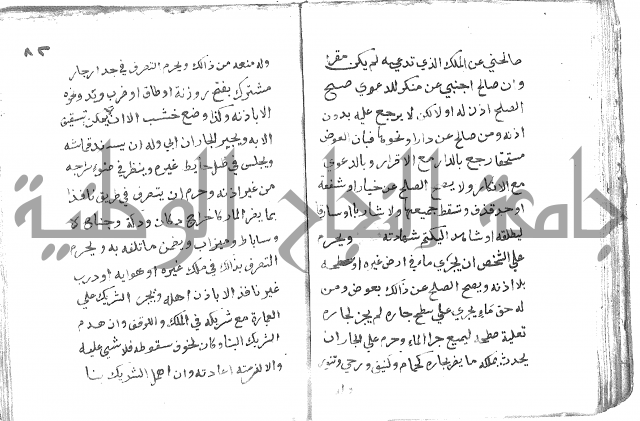 صالحني عن الملك الذي تدعيه لم يكن مقرا
وان صالح اجنبي عن منكر للدعوي صح
الصلح اذن له اولا لكن لا يرجع عليه بدون
اذنه ومن صالح عن دار او نحوها فبان العوض
مستحقا رجع بالدار مع الاقرار وبالدعوي
مع الانكار ولا يصح الصلح عن خيار او شفعة
او حد قذف وتسقط جميعها ولا شاربا او سارقا
ليطلقه او شاهدا ليكتم شهادته ويحرم
علي الشخص ان يجري ماء في ارض غيره او سطحه
بلا اذنه ويصح الصلح عن ذالك بعوض ومن
له حق ماء يجري علي سطح جاره لم يجز لجاره
تعلية سطحه ليمنع جرا الماء وحرم علي الجار ان
يحدث بملكه ما يضر بجاره كحمام وكنيف ورحي وتنور
وله
٨٢
وله منعه من ذالك ويحرم التصرف في جدار جار
مشترك بفتح روزنة او طاق او ضرب وتد ونحوه
الا باذنه وكذا وضع خشب الا ان لا يمكن تسقيف
الا به ويجبر الجار ان ابي وله ان يسند قماشه
ويجلس في ظل حايط غيره وينظر في ضوء سراجه
من غير اذنه وحرم ان يتصرف في طريق نافذ
بما يضر المار كاخراج دكان ودكة وجناح
وساباط وميزاب ويضمن ما تلف به ويحرم
التصرف بذالك في ملك غيره او هوايه او درب
غير نافذ الا باذن اهله ويجبر الشريك علي
العمارة مع شريكه في الملك والوقف وان هدم
الشريك البنا وكان لخوف سقوطه فلا شي عليه
والا لزمته اعادته وان اهمل الشريك بنا
جامعة النجاح الوطنية